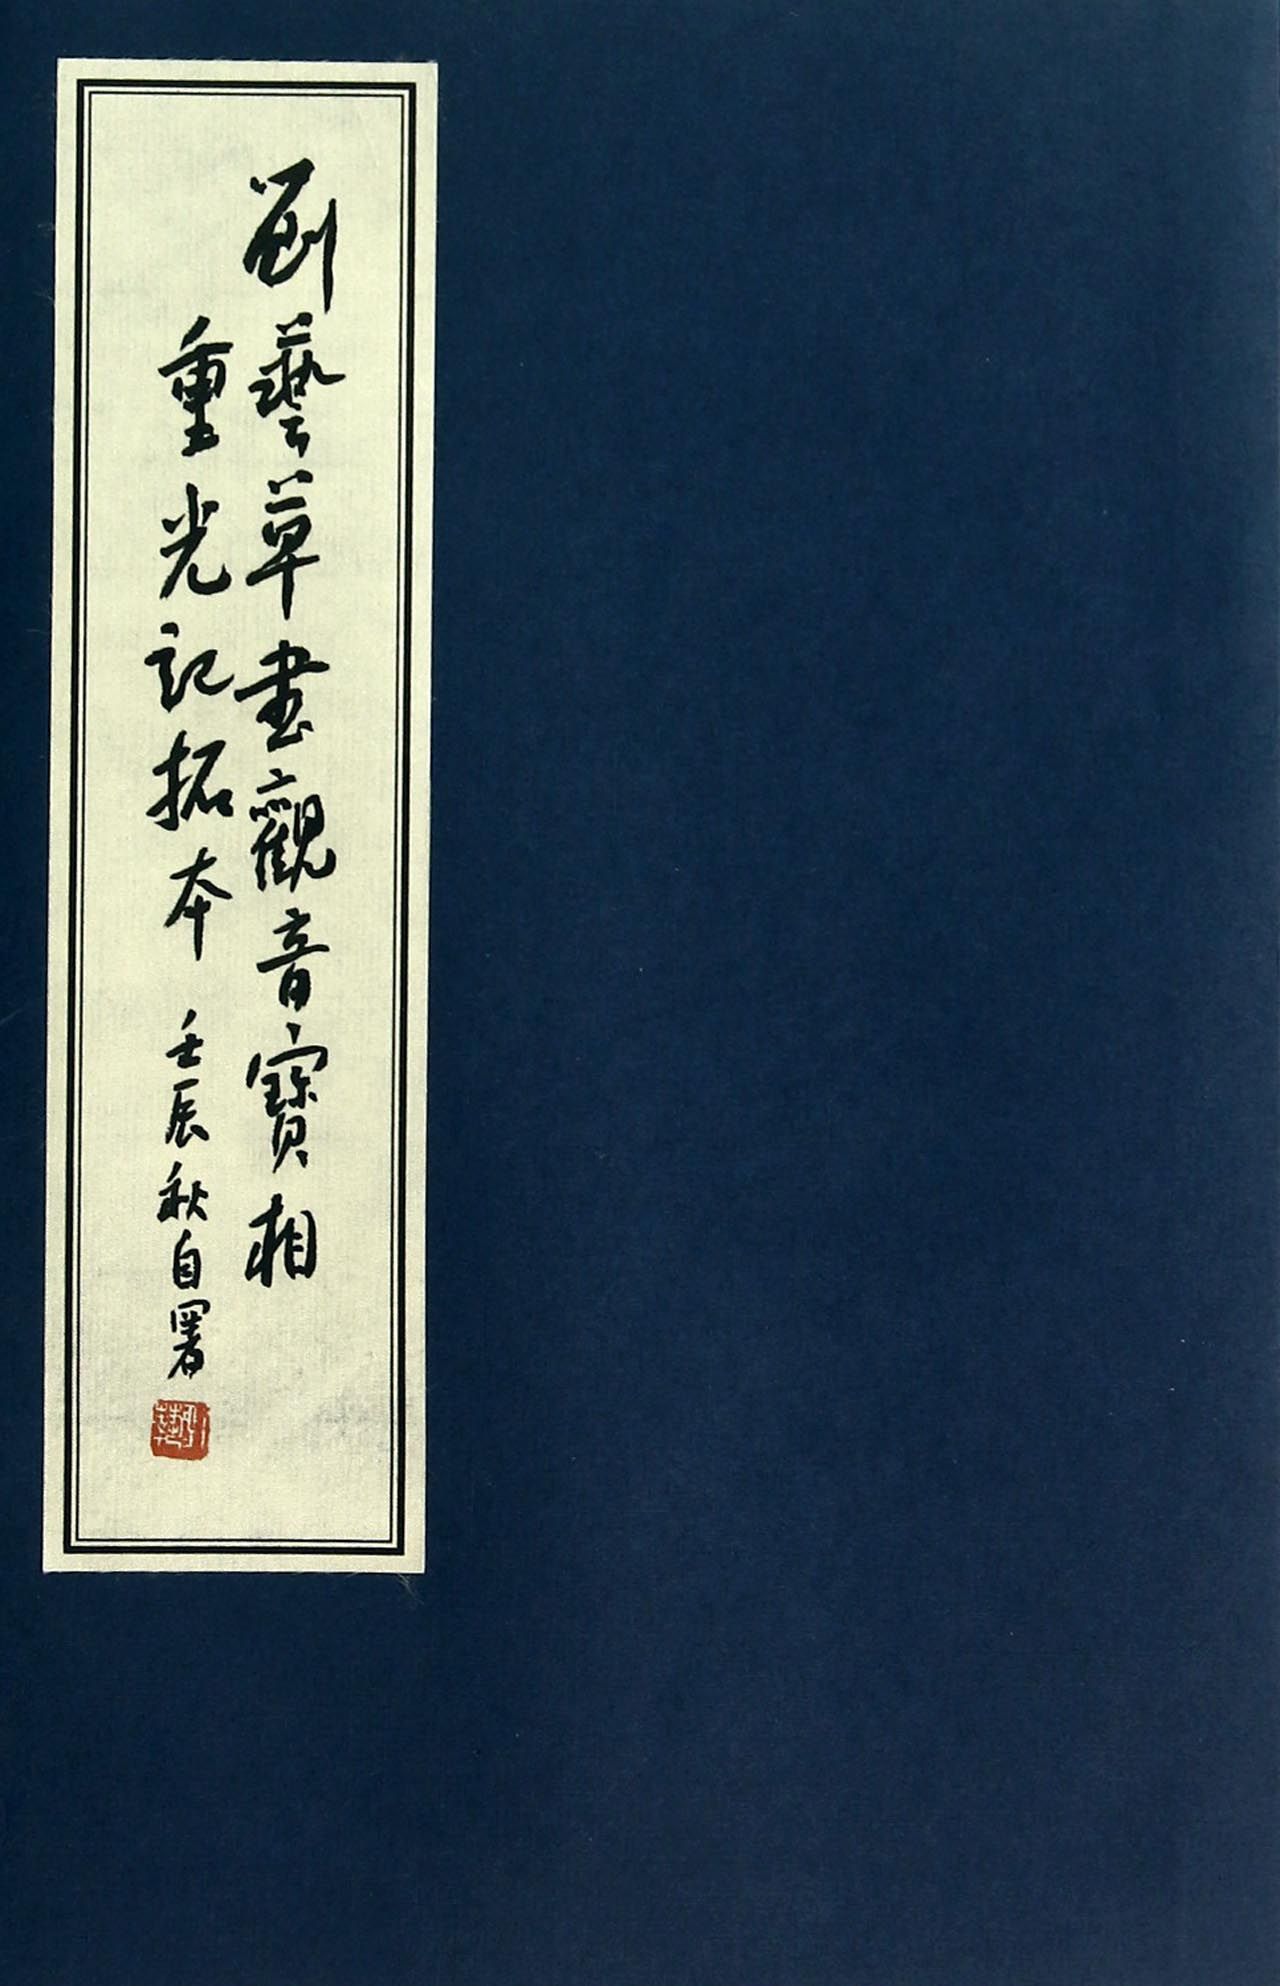 劉藝草書觀音寶相
重光記拓本 壬辰秋自署
劉藝